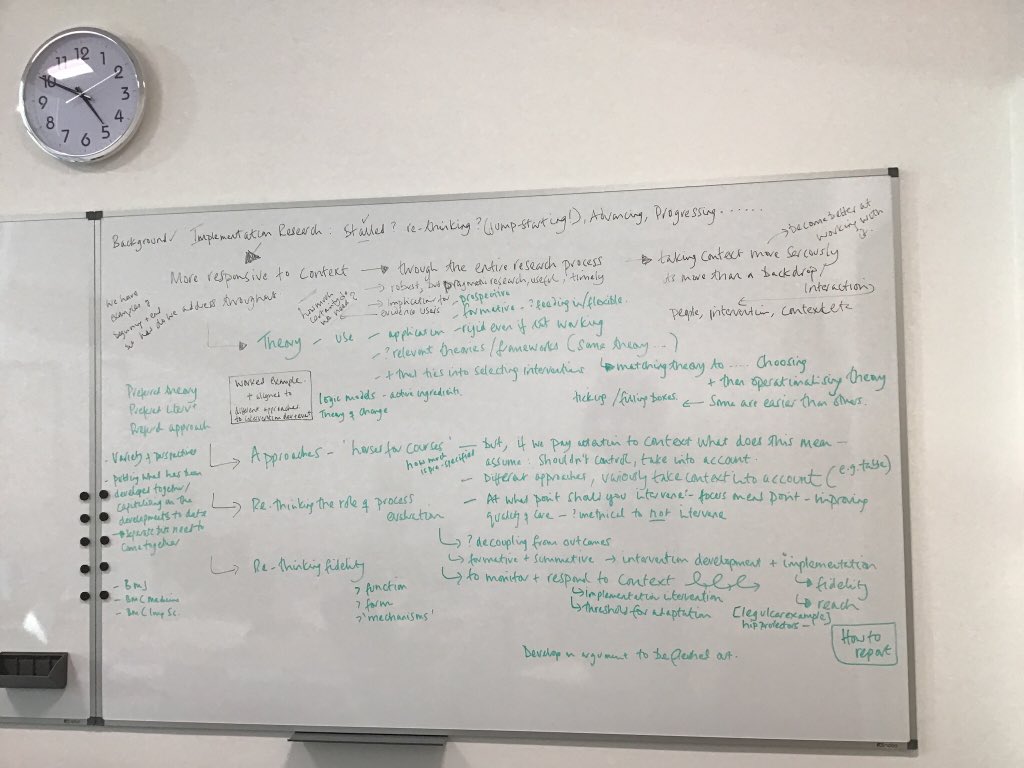 12
11 1
10 2
9 3
8 4
7 6 5
Background/ Implementation Research: Stalled? re-thinking? (jump-starting!), Advancing, Progressing......
→ become better at
working with
it.
More responsive to Context → through the entire research process → taking context more seriously
→ robust, but pragmatic research, useful, timely
its more than a backdrop/
(interaction)
→ implication for
evidence users
people, intervention, context etc
we have
examples?
beginning + end
so how do we address throughout
how much
we need?
- prospective
- formative - ? feeding in/flexible.
→ Theory - use - application - rigid even if not working
- ? relevant theories/frameworks (same theory ...)
- + that ties into selecting interventions
→ matching theory to .... Choosing
+ then operationalising theory
tick up / filling boxes. ← Some are easier than others.
Worked Example.
+ aligned to
different approaches
to intervention
logic models - active ingredients.
Theory of change
Preferred theory
Preferred
Preferred approach
- Variety of perspectives
- Pulling what has been
developed together/
capitalising on the
developments to date
→ Separate but need to
come together
→ Approaches - 'horses for courses' - but, if we pay attention to context what does this mean -
how much
is pre-specified
assume: shouldn't control, take into account.
- Different approaches, variously take context into account (e.g table)
- At what point should you intervene - focus on end point - improving
quality of care - ? unethical to not intervene
→ Re-thinking the role of process
evaluation
→ ? decoupling from outcomes
→ formative + summative → intervention development + implementation
→ to monitor + respond to context
→ fidelity
→ reach
→ Implementation intervention
→ threshold for adaptation
hip protectors -
→ Re-thinking fidelity
? function
? form
? 'mechanisms'
- BMJ
- BMC medicine
- BMC Imp Sc.
How to
report
Develop an argument to be fleshed out.